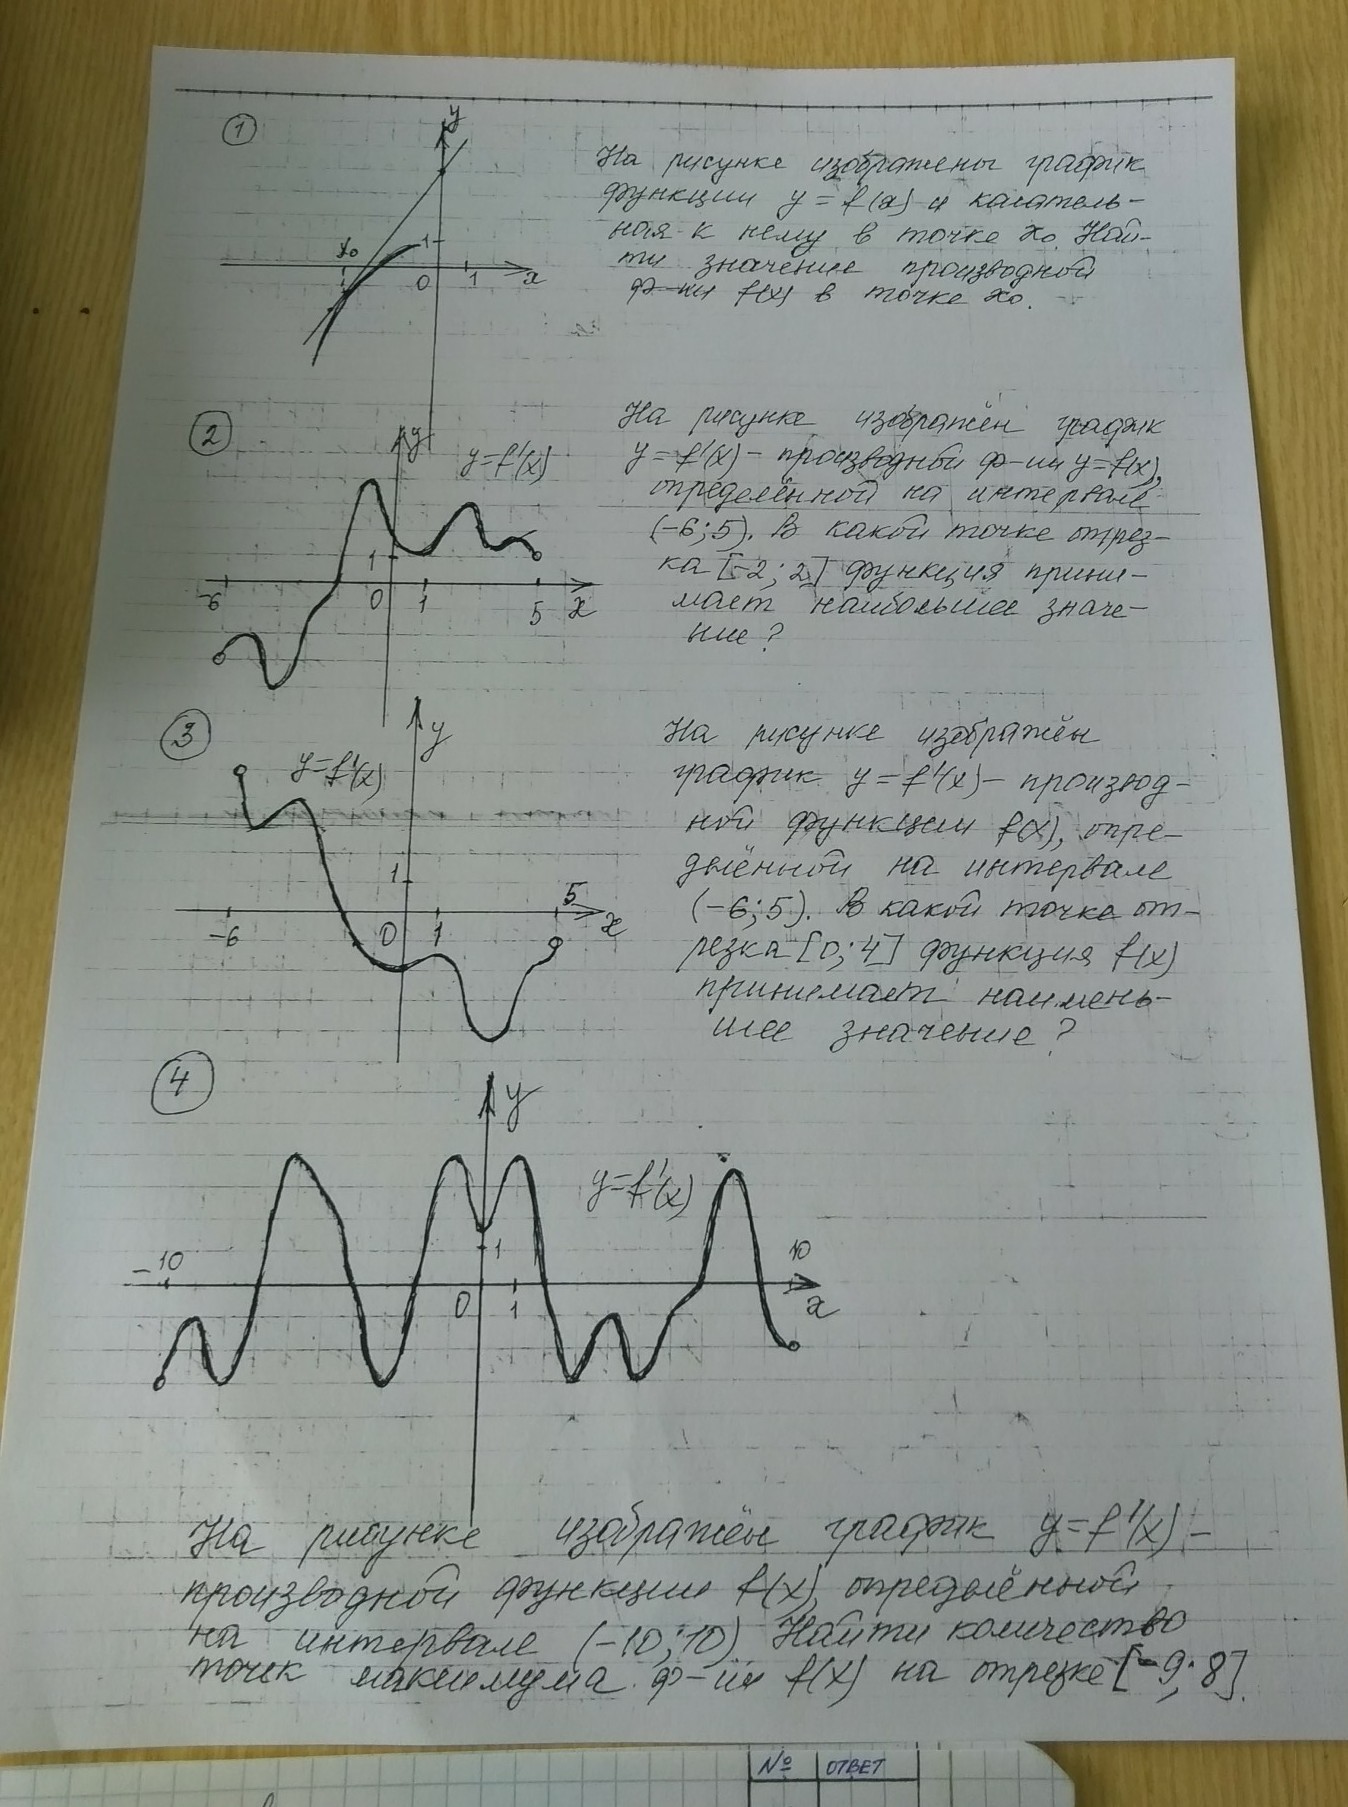 1
y
x₀
1
0
1
x
На рисунке изображены график
функции y = f(x) и касатель-
ная к нему в точке x₀. Най-
ти значение производной
ф-ии f(x) в точке x₀.
2
y
y=f'(x)
1
-6
0
1
5
x
На рисунке изображён график
y = f'(x) – производной ф-ии y=f(x),
определённой на интервале
(-6;5). В какой точке отрез-
ка [-2; 2] функция прини-
мает наибольшее значе-
ние?
3
y
y=f'(x)
1
5
-6
0
1
x
На рисунке изображён
график y = f'(x) – производ-
ной функции f(x), опре-
делённой на интервале
(-6;5). В какой точке от-
резка [0; 4] функция f(x)
принимает наимень-
шее значение?
4
y
y=f'(x)
-10
1
10
0
1
x
На рисунке изображён график y=f'(x) –
производной функции f(x), определённой
на интервале (-10;10) Найти количество
точек максимума ф-ии f(x) на отрезке [-9; 8].
№ ОТВЕТ